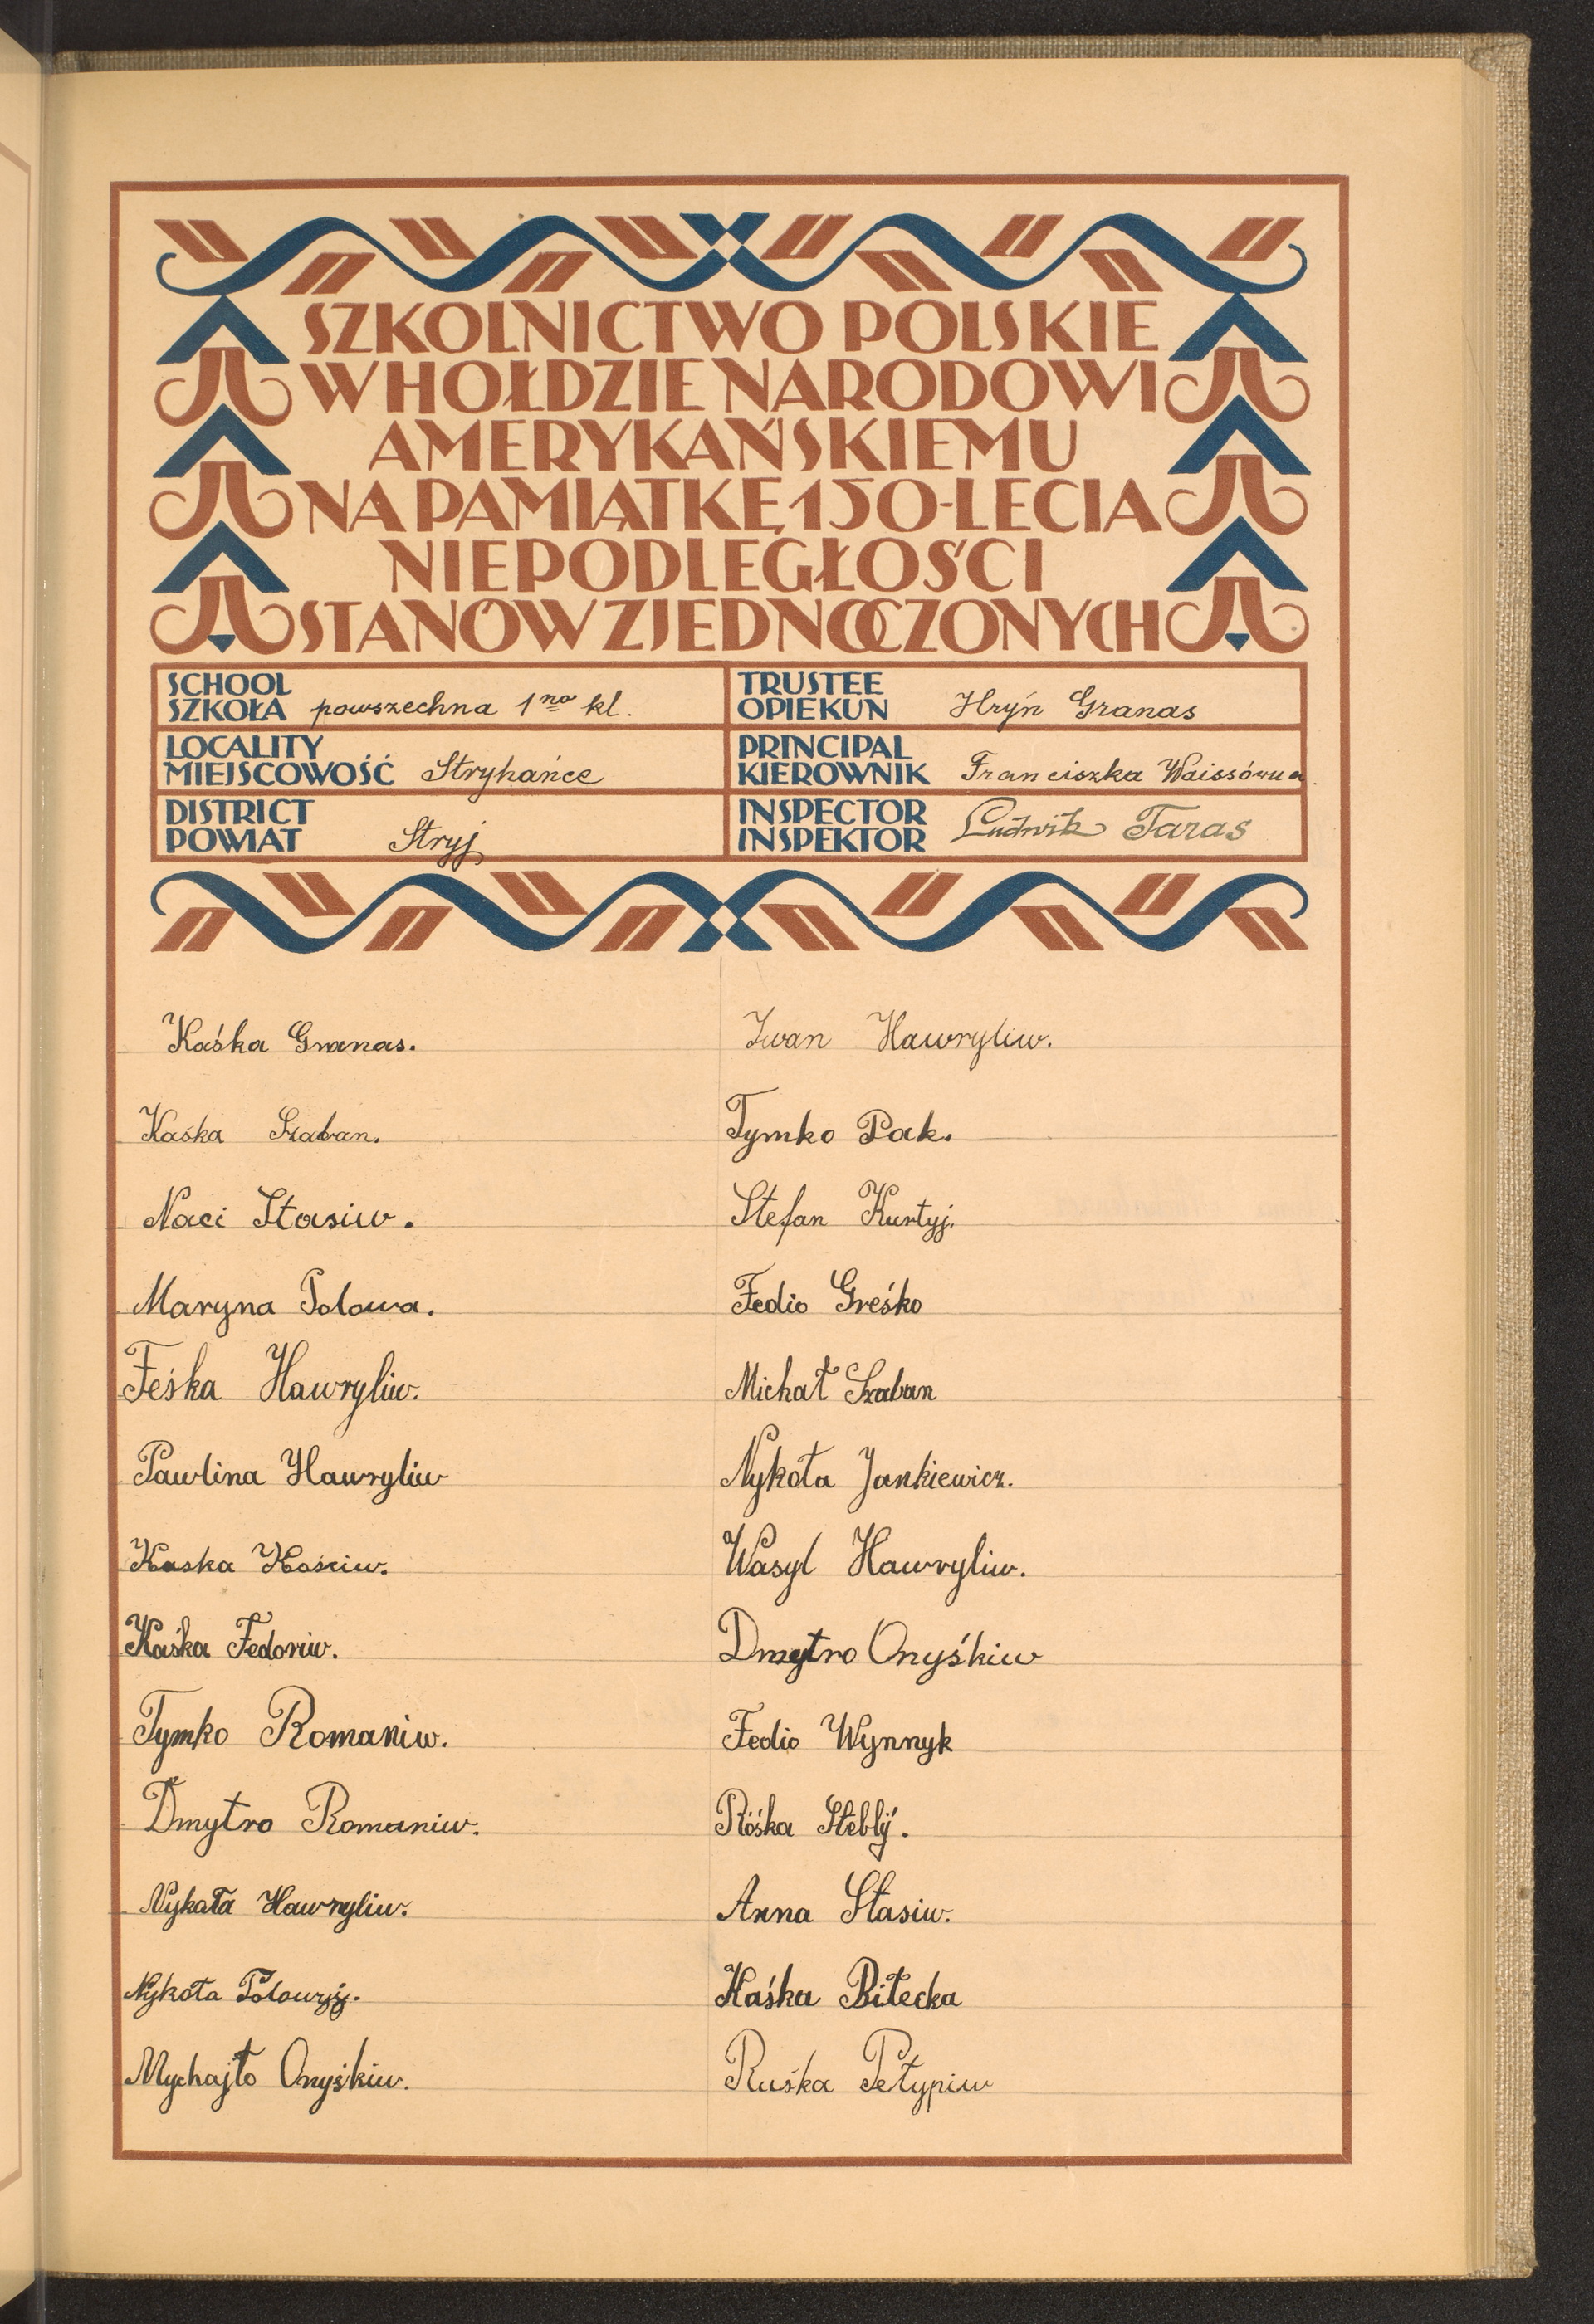 SZKOLNICTWO POLSKIE
W HOŁDZIE NARODOWI
AMERYKAŃSKIEMU
NA PAMIĄTKĘ 150-LECIA
NIEPODLEGŁOŚCI
STANÓW ZJEDNOCZONYCH
SCHOOL
SZKOŁA powszechna 1no kl.
TRUSTEE
OPIEKUN Hryń Granas
LOCALITY
MIEJSCOWOŚĆ Stryhańce
PRINCIPAL
KIEROWNIK Franciszka Waissówna.
DISTRICT
POWIAT Stryj
INSPECTOR
INSPEKTOR Ludwik Taras
Kaśka Granas.
Kaśka Szaban.
Naci Stasiw.
Maryna Polowa.
Feśka Hawryliw.
Pawlina Hawryliw
Kaska Kościw.
Kaśka Fedoriw.
Tymko Romaniw.
Dmytro Romaniw.
Nykoła Hawryliw.
Nykoła Polowyj.
Mychajło Onyśkiw.
Iwan Hawryliw.
Tymko Pak.
Stefan Kurtyj.
Fedio Greśko
Michał Szaban
Nykoła Jankiewicz.
Wasyl Hawryliw.
Dmytro Onyśkiw
Fedio Wynnyk
Róśka Steblij.
Anna Stasiw.
Kaśka Biłecka
Ruśka Petypiw